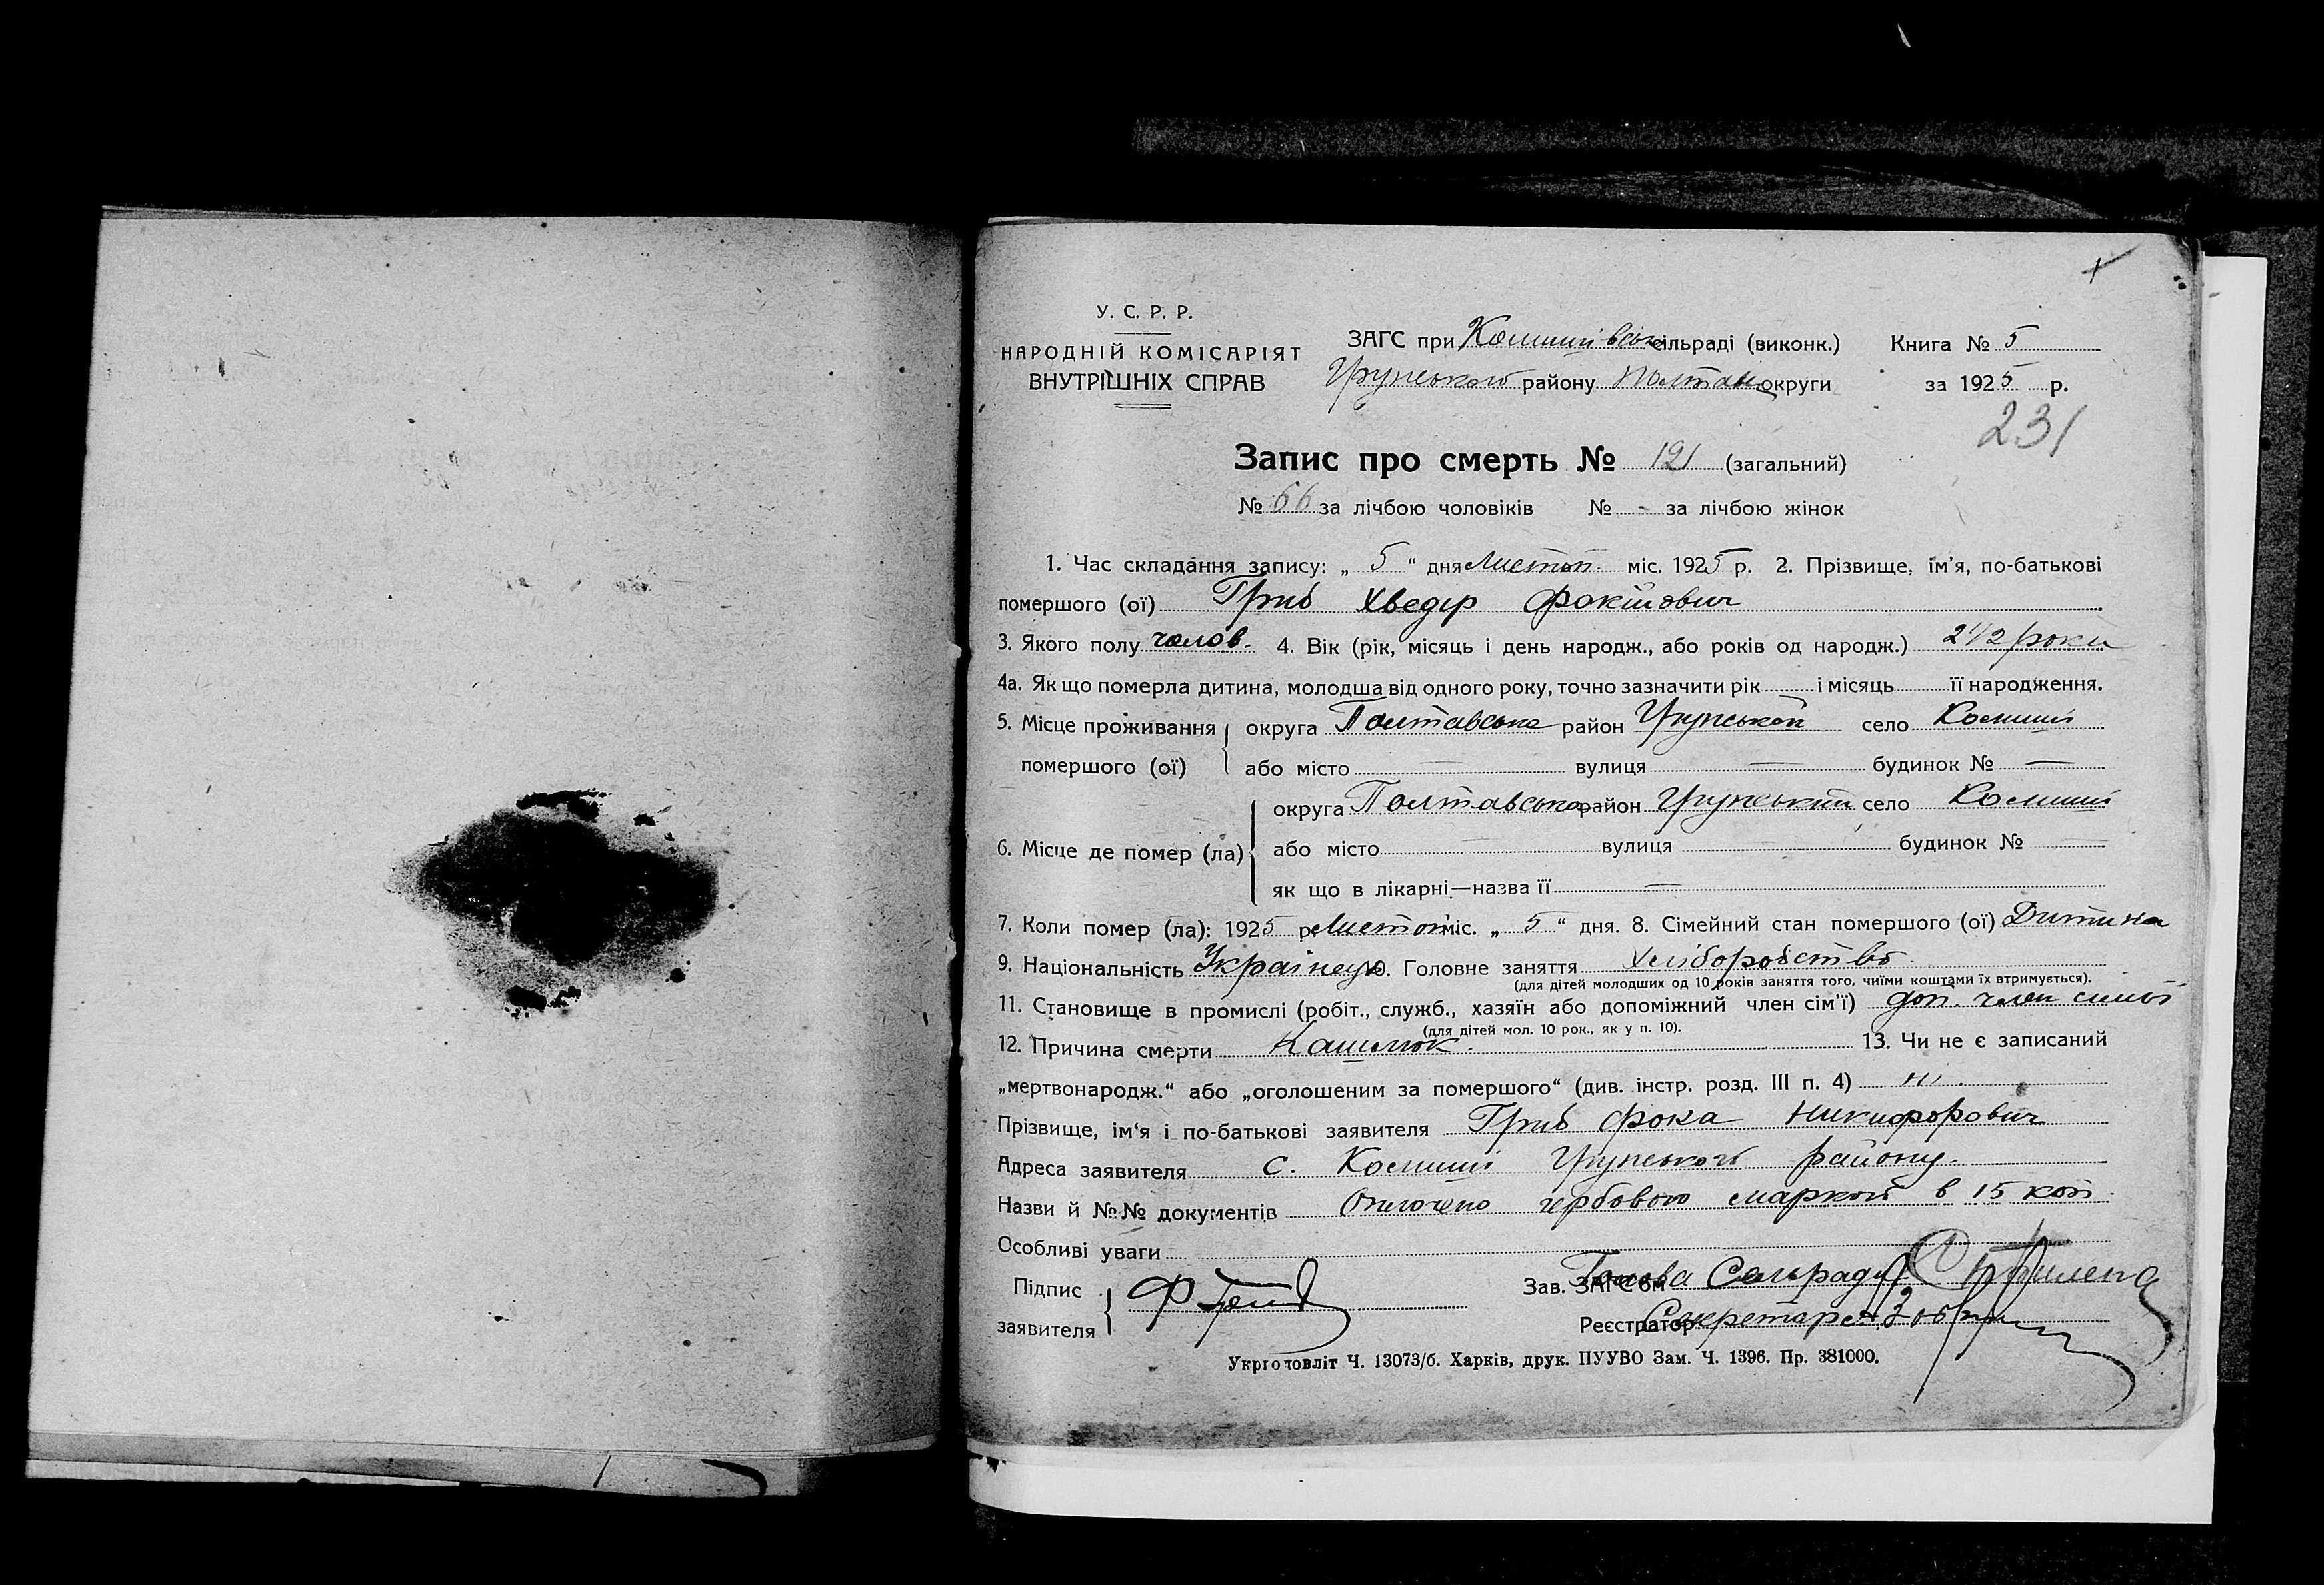 У. С. Р. Р.
НАРОДНІЙ КОМІСАРІЯТ
ВНУТРІШНІХ СПРАВ
ЗАГС при Комишівськ сільраді (виконк.) Книга № 5
Грунського району Полтав округи за 1925 р.
231
Запис про смерть № 121 (загальний)
№ 66 за лічбою чоловіків № - за лічбою жінок
1. Час складання запису: „ 5 “ дня Листоп. міс. 1925 р. 2. Прізвище, ім'я, по-батькові
помершого (ої) Гриб Хведір Фокійович
3. Якого полу чолов. 4. Вік (рік, місяць і день народж., або років од народж.) 2 1/2 роки
4а. Як що померла дитина, молодша від одного року, точно зазначити рік і місяць її народження.
5. Місце проживання округа Полтавська район Грунський село Комиші
помершого (ої) або місто — вулиця — будинок № —
6. Місце де помер (ла) округа Полтавська район Грунський село Комиші
або місто — вулиця — будинок № —
як що в лікарні—назва її —
7. Коли помер (ла): 1925 р. Листоп міс. „ 5 “ дня. 8. Сімейний стан помершого (ої) Дитина
9. Національність Українец 10. Головне заняття Хліборобство
(для дітей молодших од 10 років заняття того, чиїми коштами їх втримується).
11. Становище в промислі (робіт., служб., хазяїн або допоміжний член сім'ї) доп. член сим'ї
(для дітей мол. 10 рок., як у п. 10).
12. Причина смерти Кашлюк. 13. Чи не є записаний
„мертвонародж.“ або „оголошеним за помершого“ (див. інстр. розд. III п. 4) ні.
Прізвище, ім'я і по-батькові заявителя Гриб Фока Никифорович
Адреса заявителя с. Комиші Грунського району.
Назви й №№ документів Оплочено гербовою маркою в 15 коп.
Особливі уваги
Підпис заявителя Ф Гриб
Зав. ЗАГС'ом Голова Сельради
Реєстратор Секретарь
Укрголовліт Ч. 13073/б. Харків, друк. ПУУВО Зам. Ч. 1396. Пр. 381000.